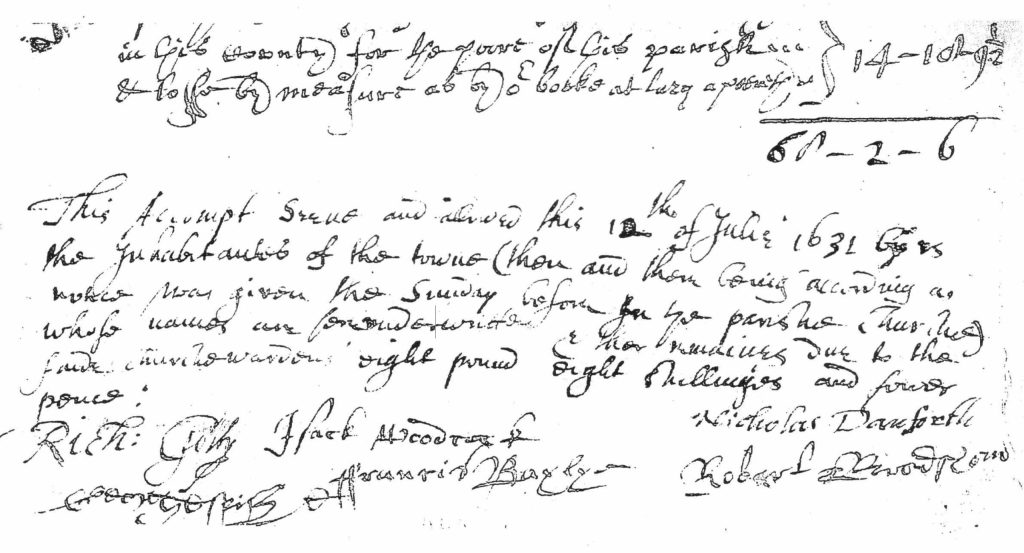 in this County for the poore of this parish 14-18-9½
& losse by measure as by ye booke at larg appeareth
68 - 2 - 6
This Accompt Seene and alowed this 12th of Julie 1631 by us
the Inhabitantes of the towne (then and there being according as
notice was given the Sunday before in the parishe Churche)
whose names are hereunderwritten & ther remaines due to the
saide churchewardens eight pound eight shillinges and fower
pence:
Rich: Isack Nicholas Danforth
Francis Robert